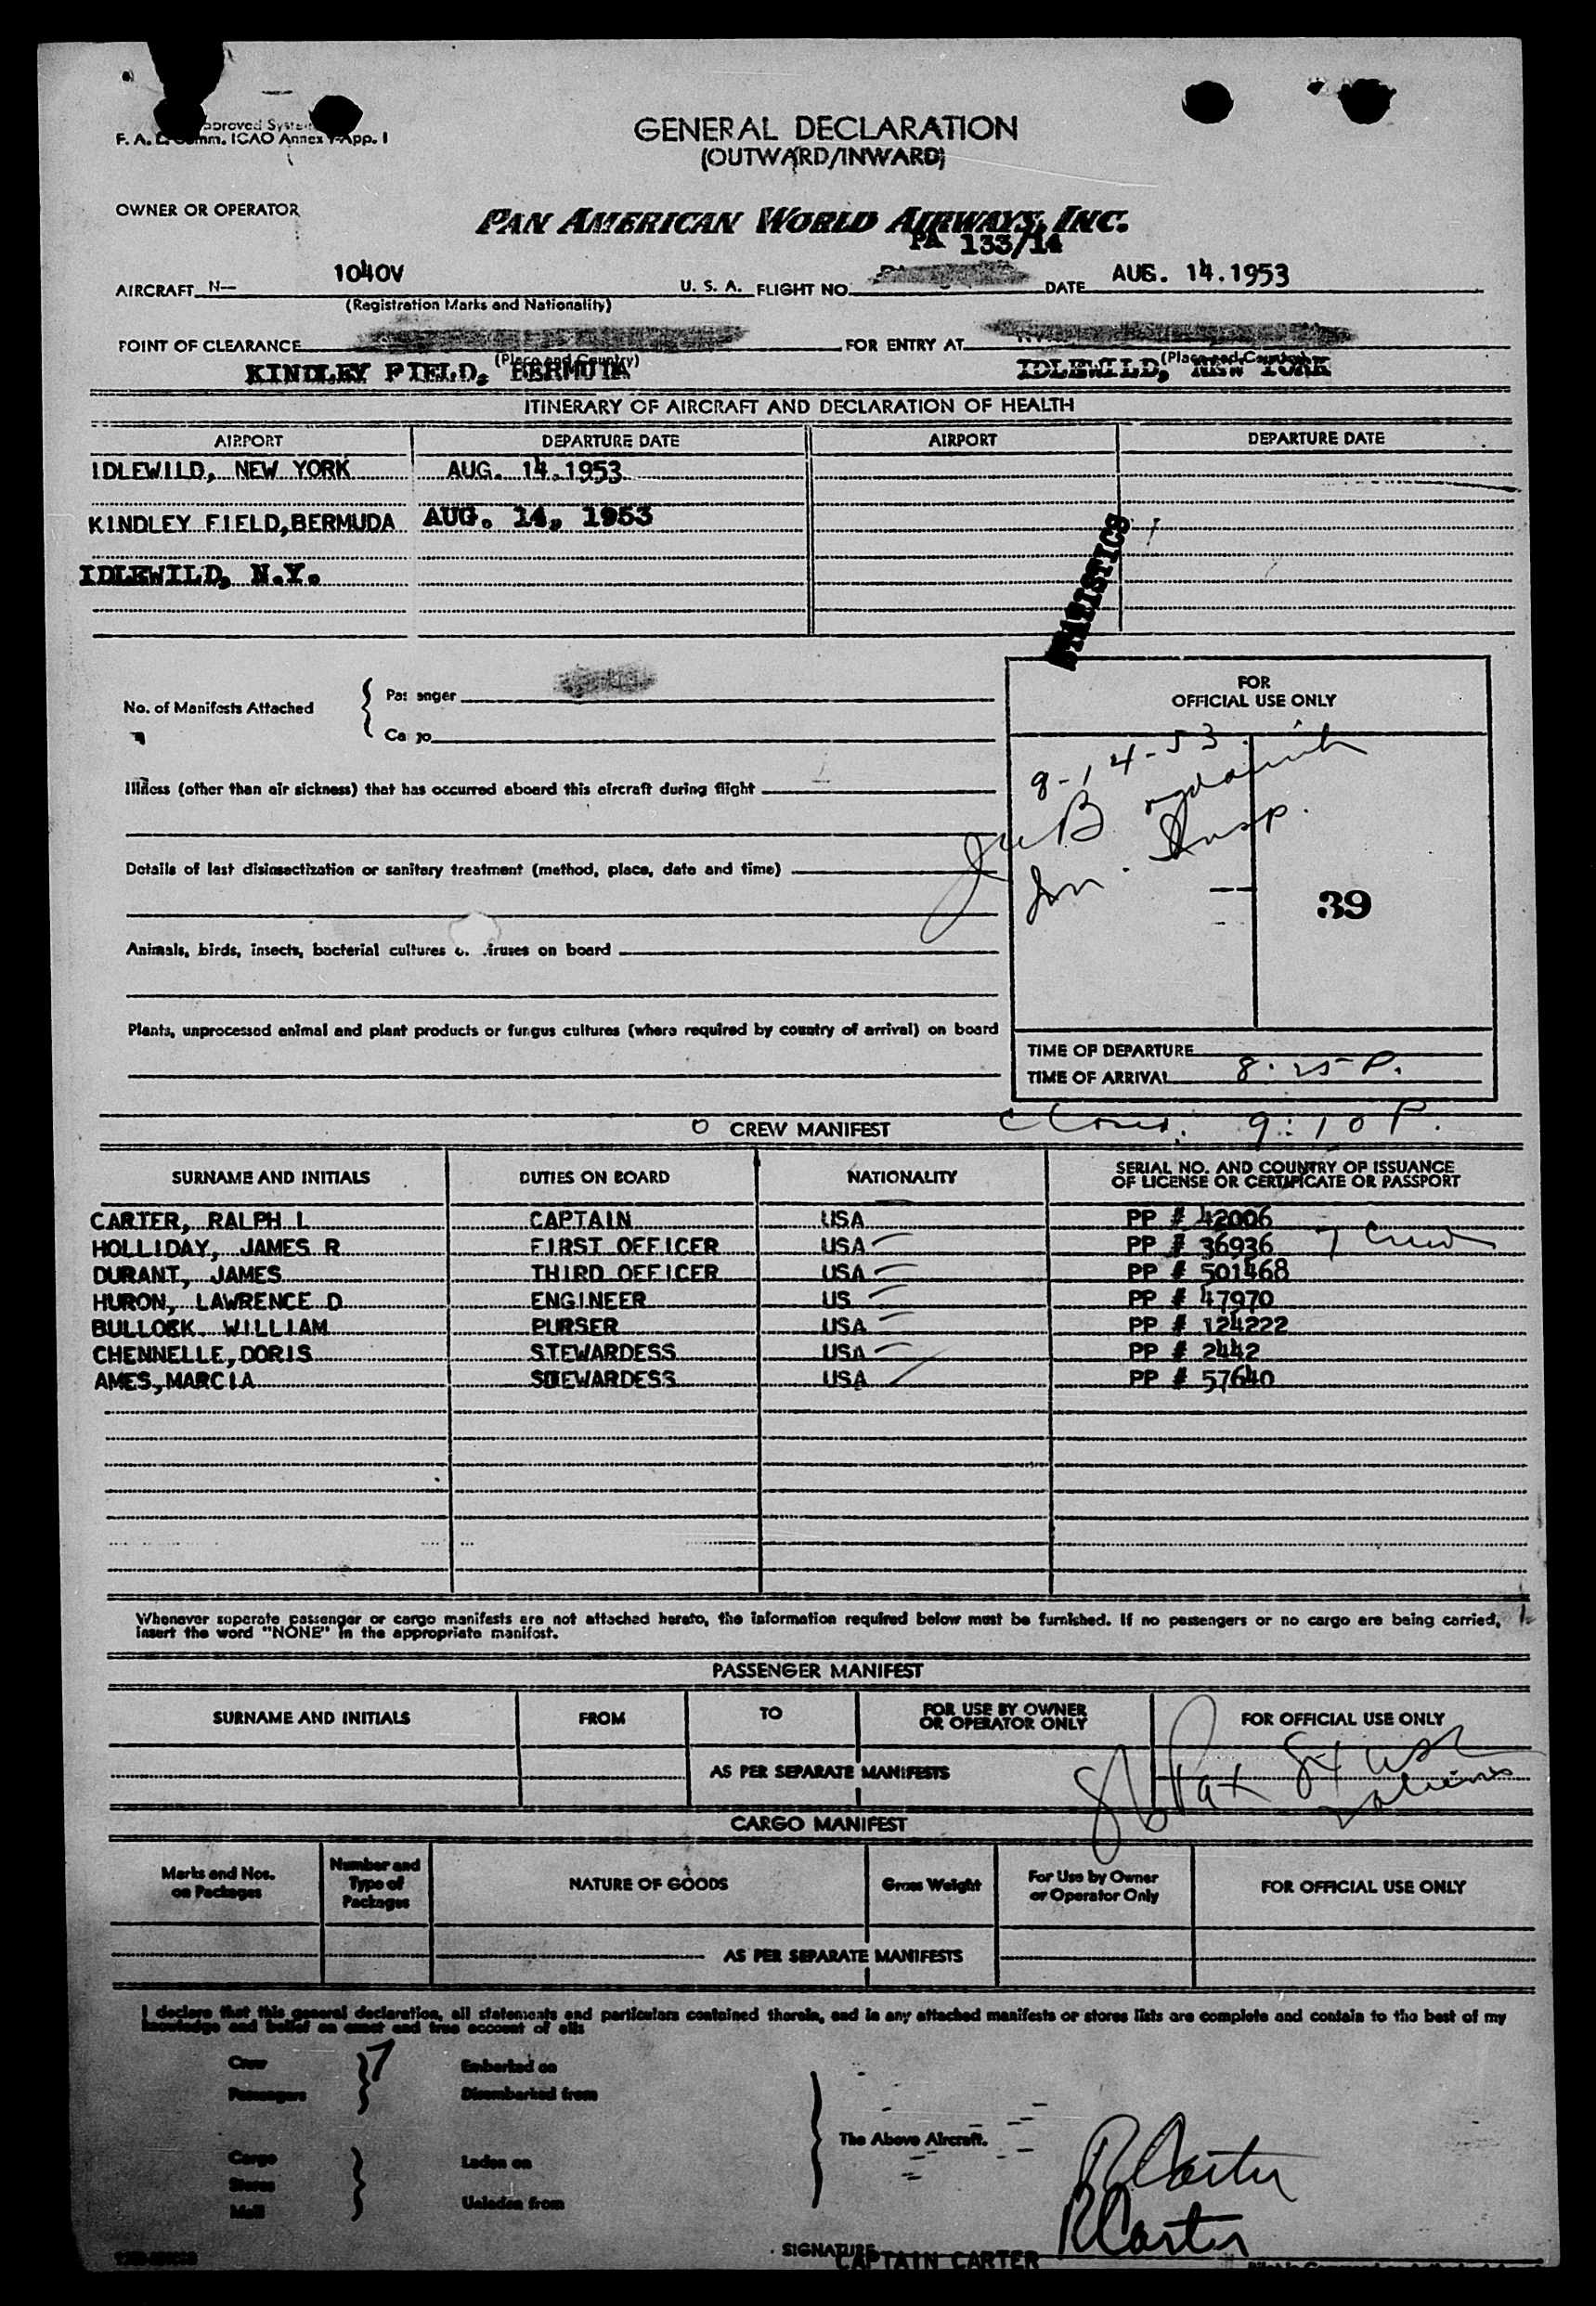 Approved System
F. A. L. Comm. ICAO Annex 9-App. I
GENERAL DECLARATION
(OUTWARD/INWARD)
OWNER OR OPERATOR
PAN AMERICAN WORLD AIRWAYS, INC.
PA 133/14
AIRCRAFT N— 1040V U. S. A. FLIGHT NO. DATE AUG. 14.1953
(Registration Marks and Nationality)
POINT OF CLEARANCE FOR ENTRY AT
(Place and Country) (Place and Country)
KINDLEY FIELD, BERMUDA IDLEWILD, NEW YORK
ITINERARY OF AIRCRAFT AND DECLARATION OF HEALTH
AIRPORT DEPARTURE DATE AIRPORT DEPARTURE DATE
IDLEWILD, NEW YORK AUG. 14.1953
KINDLEY FIELD,BERMUDA AUG. 14, 1953
IDLEWILD, N.Y.
STATISTICS
No. of Manifests Attached
Passenger
Cargo
FOR
OFFICIAL USE ONLY
8-14-53
Illness (other than air sickness) that has occurred aboard this aircraft during flight
Imm. Insp.
Details of last disinsectization or sanitary treatment (method, place, date and time)
39
Animals, birds, insects, bacterial cultures or viruses on board
Plants, unprocessed animal and plant products or fungus cultures (where required by country of arrival) on board
TIME OF DEPARTURE
TIME OF ARRIVAL 8:25 P.
Closed: 9:10 P.
CREW MANIFEST
SURNAME AND INITIALS DUTIES ON BOARD NATIONALITY SERIAL NO. AND COUNTRY OF ISSUANCE
OF LICENSE OR CERTIFICATE OR PASSPORT
CARTER, RALPH L CAPTAIN USA PP # 42006
HOLLIDAY, JAMES R FIRST OFFICER USA PP # 36936 7 Crew
DURANT, JAMES THIRD OFFICER USA PP # 501468
HURON, LAWRENCE D ENGINEER US PP # 47970
BULLOCK WILLIAM PURSER USA PP # 124222
CHENNELLE,DORIS STEWARDESS USA PP # 2442
AMES,MARCIA STEWARDESS USA PP # 57640
Whenever separate passenger or cargo manifests are not attached hereto, the information required below must be furnished. If no passengers or no cargo are being carried,
insert the word "NONE" in the appropriate manifest.
PASSENGER MANIFEST
SURNAME AND INITIALS FROM TO FOR USE BY OWNER
OR OPERATOR ONLY FOR OFFICIAL USE ONLY
AS PER SEPARATE MANIFESTS
Pax
CARGO MANIFEST
Marks and Nos.
on Packages Number and
Type of
Packages NATURE OF GOODS Gross Weight For Use by Owner
or Operator Only FOR OFFICIAL USE ONLY
AS PER SEPARATE MANIFESTS
I declare that this general declaration, all statements and particulars contained therein, and in any attached manifests or stores lists are complete and contain to the best of my
knowledge and belief an exact and true account of all:
Crew 7 Embarked on
Passengers Disembarked from
The Above Aircraft.
Cargo Laden on
Stores
Mail Unladen from
R Carter
R Carter
SIGNATURE
CAPTAIN CARTER